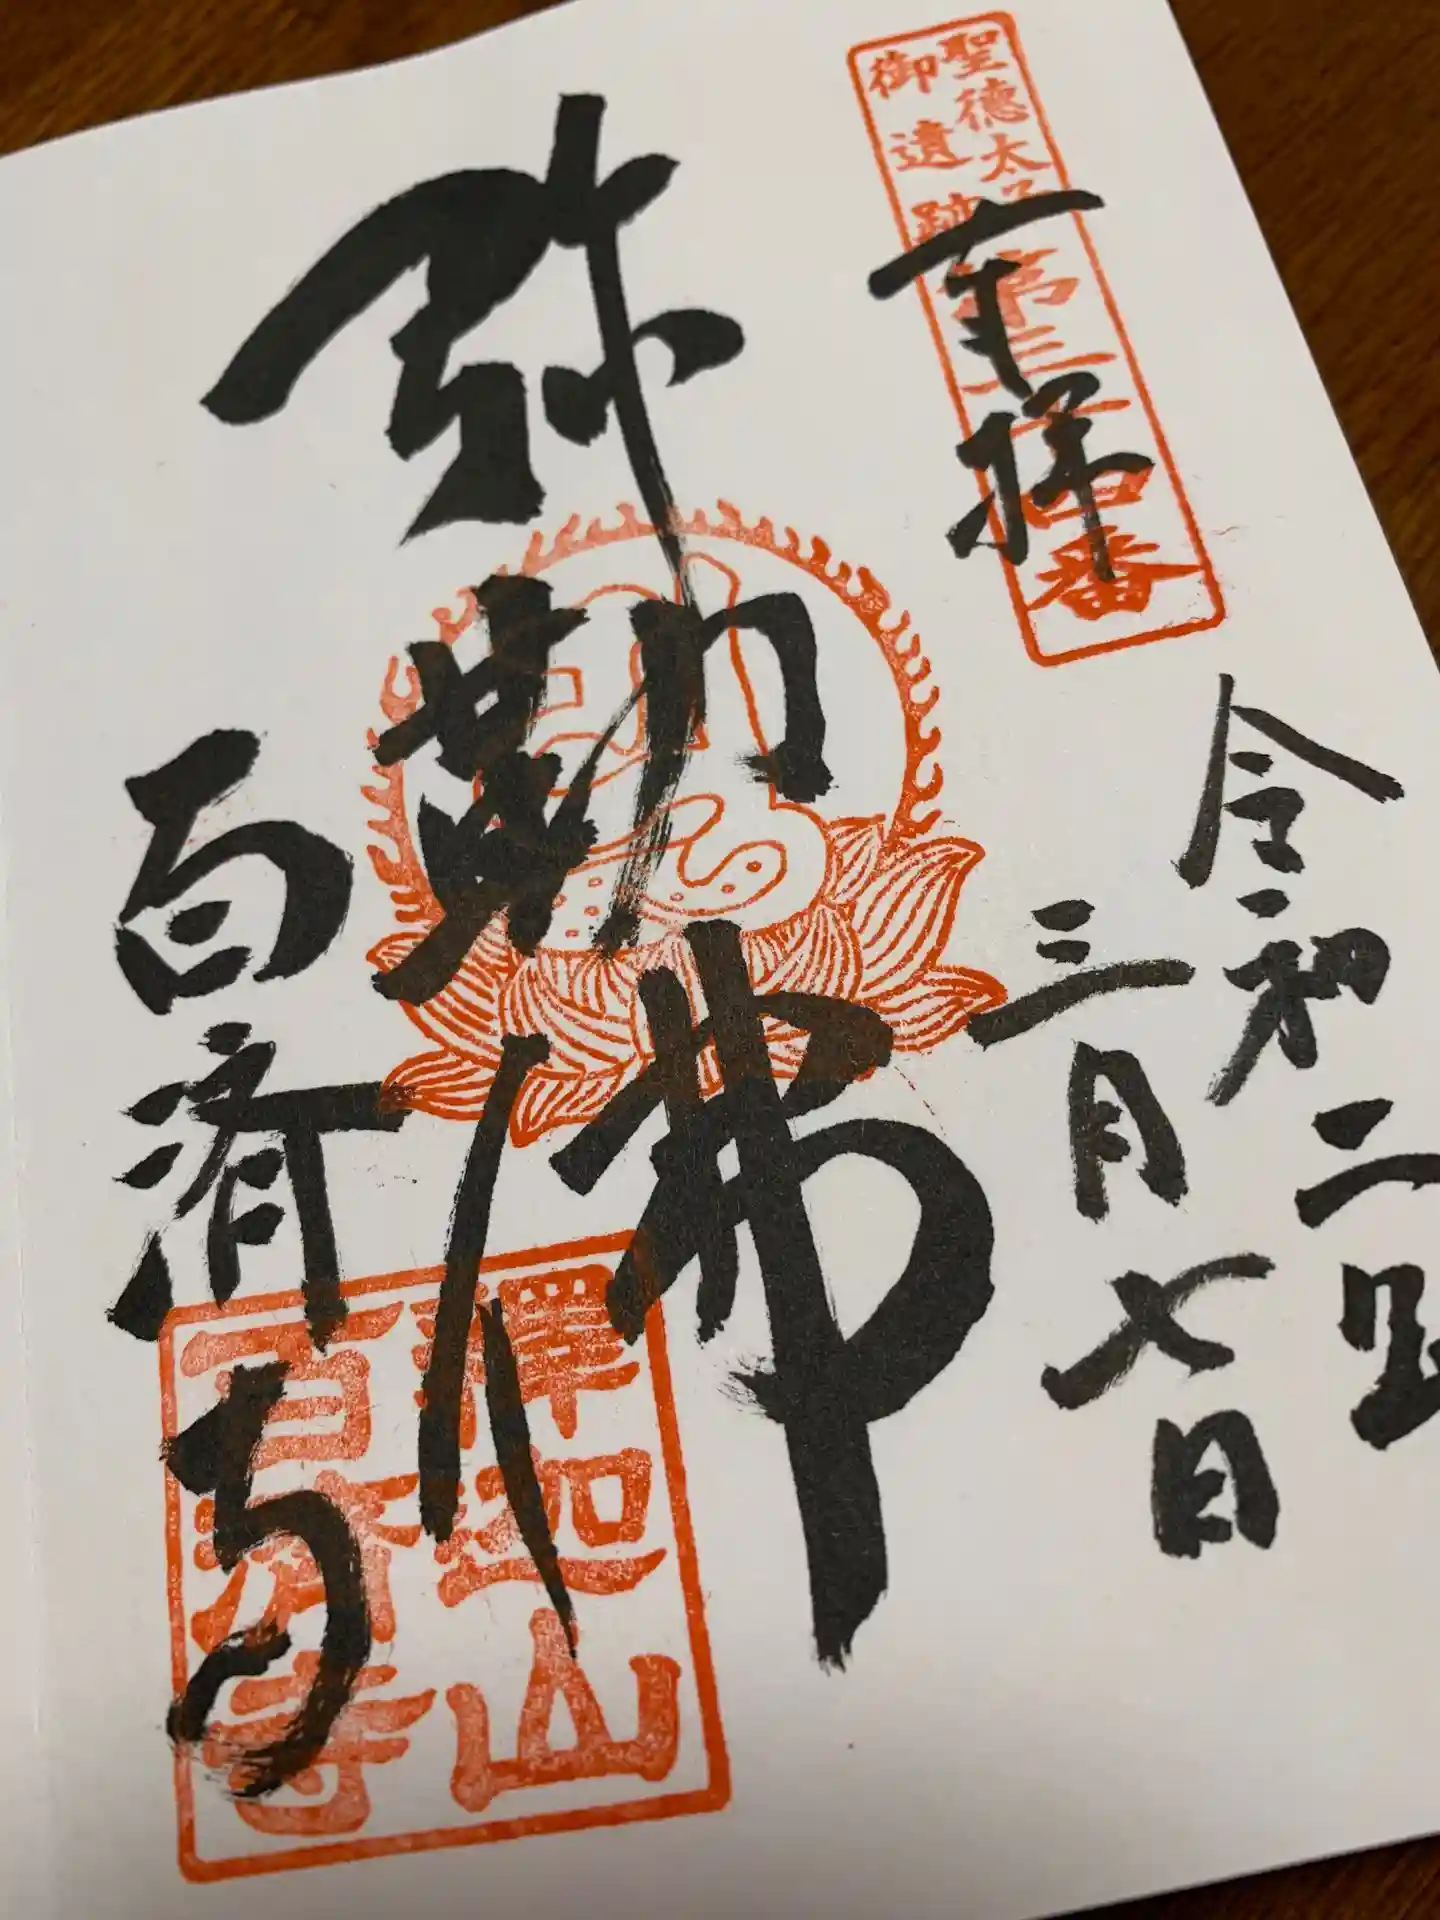 聖徳太子
御遺跡
第三十四番
奉拝
令和二年
三月七日
弥勒佛
百済寺
釋迦山
百済寺